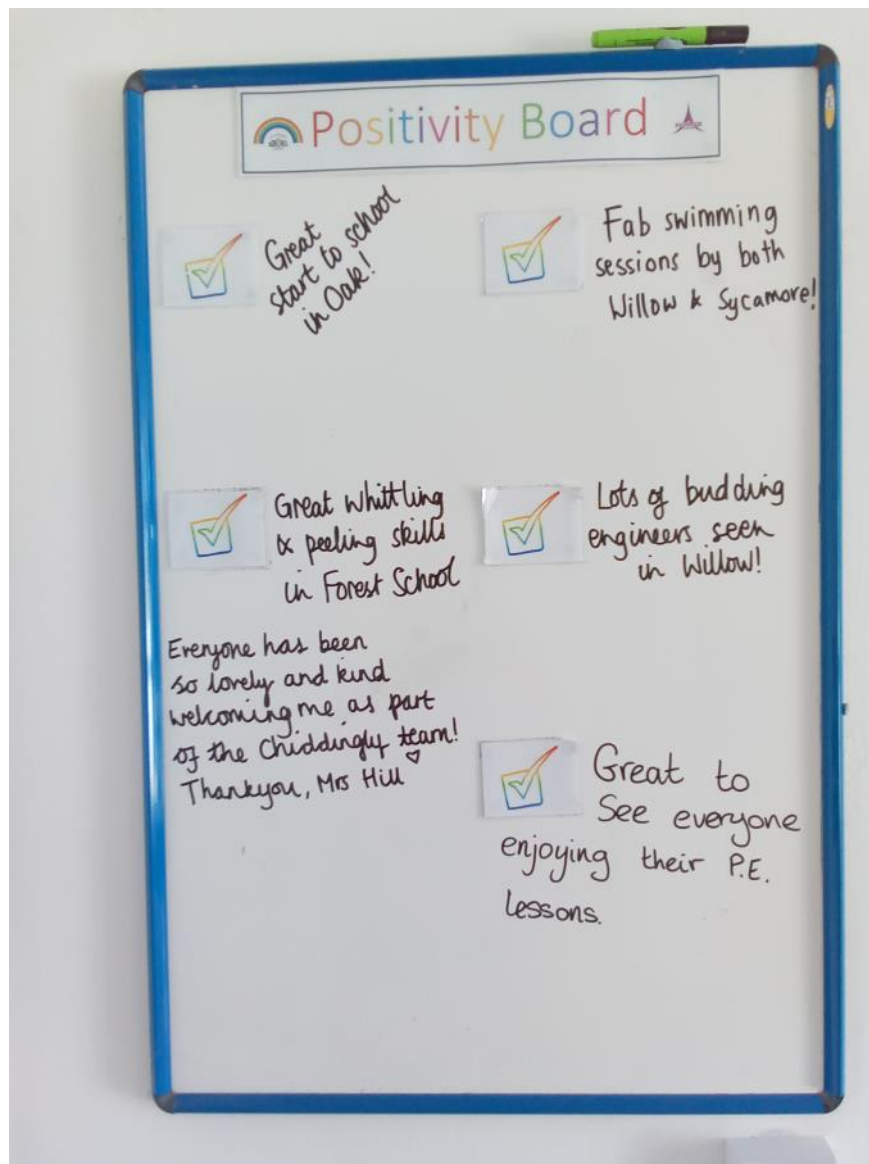 Positivity Board
Great
start to school
in Oak!
Fab swimming
sessions by both
Willow & Sycamore!
Great whittling
& peeling skills
in Forest School
Lots of budding
engineers seen
in Willow!
Everyone has been
so lovely and kind
welcoming me as part
of the Chiddingly team!
Thankyou, Mrs Hill
Great to
See everyone
enjoying their P.E.
lessons.